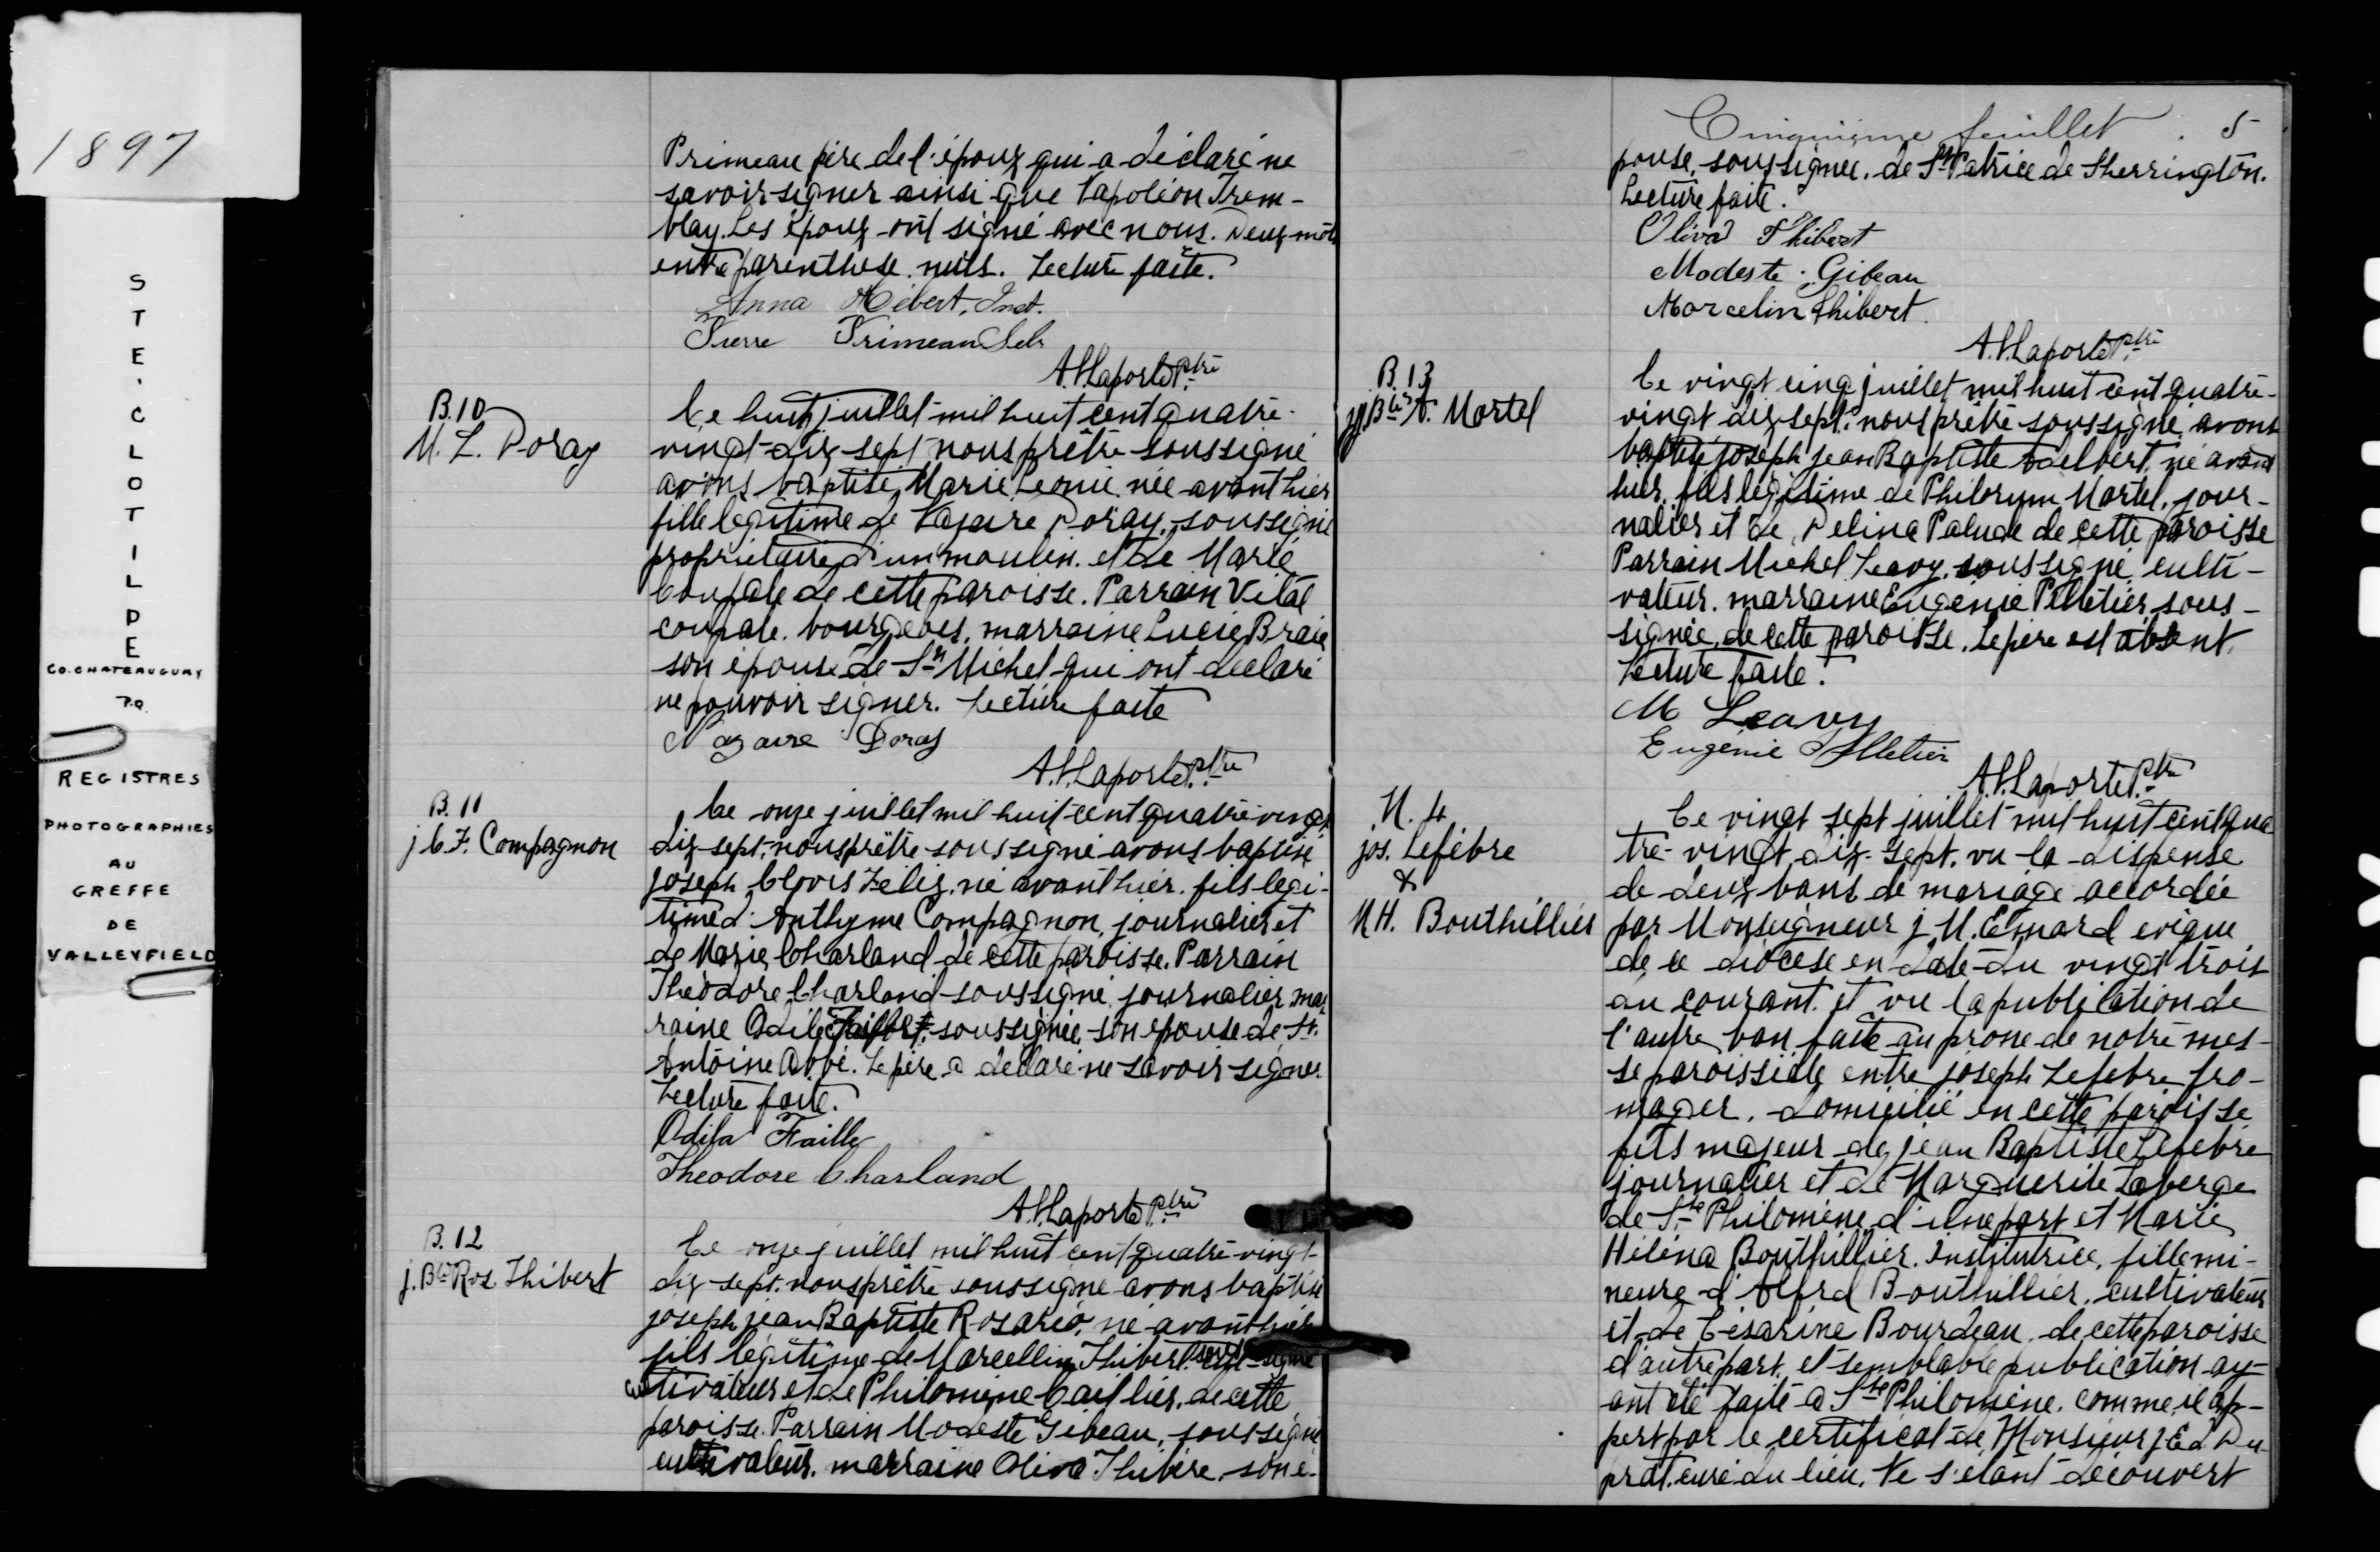 1897
STE. CLOTILDE
CO. CHATEAUGUAY
P.Q.
REGISTRES
PHOTOGRAPHIES
AU
GREFFE
DE
VALLEYFIELD
Primeau père de l'époux qui a déclaré ne
savoir signer ainsi que Napoléon Trem-
blay. Les époux ont signé avec nous. Deux mots
entre parenthèse nuls. Lecture faite.
Anna Hébert, Inst.
Pierre Primeau
A.H. Laporte Ptre
B.10
M. L. Doray
Le huit juillet mil huit cent quatre-
vingt-dix-sept nous prêtre soussigné
avons baptisé Marie Leonie née avant hier
fille légitime de Nazaire Doray, soussigné
propriétaire d'un moulin et de Marie
Coupale de cette paroisse. Parrain Vital
coupale. bourgeois, marraine Lucie Braie
son épouse de St Michel qui ont déclaré
ne pouvoir signer. Lecture faite
Nazaire Doray
A.H. Laporte Ptre
B.11
j C. F. Compagnon
Le onze juillet mil huit cent quatre vingt
dix-sept, nous prêtre soussigné avons baptisé
joseph Clovis Félix, né avant hier, fils légi-
time d'Anthyme Compagnon, journalier et
de Marie Charland de cette paroisse. Parrain
Théodore Charland soussigné, journalier, mar
raine Odile soussignée son épouse de St.
Antoine Abbé. Le père a déclaré ne savoir signer.
Lecture faite.
Odila Faille
Theodore Charland
A.H. Laporte Ptre
B.12
j. Bte Ros. Thibert
Le onze juillet mil huit cent quatre-vingt-
dix-sept, nous prêtre soussigné avons baptisé
joseph jean Baptiste Rosario, né avant hier
fils légitime de Marcellin Thibert
cultivateur et de Philomène Caillier, de cette
paroisse. Parrain Modeste Gibeau, soussigné
cultivateur. marraine Oliva Thibère son é-
Cinquième feuillet. 5
pouse, soussignée, de St Patrice de Sherrington.
Lecture faite.
Oliva Thibert
Modeste Gibeau
Marcelin Thibert
A.H. Laporte Ptre
B.13
Bte A. Martel
Le vingt cinq juillet mil huit cent quatre-
vingt dix-sept, nous prêtre soussigné avons
baptisé joseph jean Baptiste Adelbert, né avant
hier, fils légitime de Philorum Martel, jour-
nalier et de Delina Palude de cette paroisse
Parrain Michel Leavy, soussigné, culti-
vateur. marraine Eugenie Pelletier sous-
signée, de cette paroisse. Le père est absent.
Lecture faite.
M Leavy
Eugenie Pelletier
A.H. Laporte Ptre
M. 4
jos. Lefebre
&
M H. Bouthillier
Le vingt sept juillet mil huit cent qua
tre-vingt dix-sept, vu la dispense
de deux bans de mariage accordée
par Monseigneur j M. Emard evêque
de ce diocèse en date du vingt trois
du courant et vu la publication de
l'autre ban faite au prone de notre mes-
se paroissiale entre joseph Lefebre fro-
mager, domicilié en cette paroisse
fils majeur de jean Baptiste Lefebre
journalier et de Marguerite Laberge
de Ste Philomène d'une part et Marie
Héléna Bouthillier, Institutrice, fille mi-
neure d'Alfred Bouthillier, cultivateur
et de Césarine Bourdeau, de cette paroisse
d'autre part, et semblable publication ay-
ant été faite à Ste Philomène, comme il ap-
pert par le certificat de Monsieur j Ed Du-
prat, curé du lieu. Ne s'étant découvert